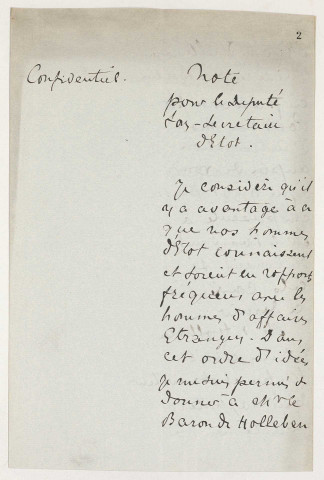 2
Confidentiel.
Note
pour le Deputé
Sous-Secretaire
d'Etat.
Je considère qu'il
y a avantage à ce
que nos hommes
d'Etat connaissent
et soient en rapports
fréquens avec les
hommes d'affaires
Etrangers. Dans
cet ordre d'idées
je me suis permis de
donner à le
Baron de Holleben